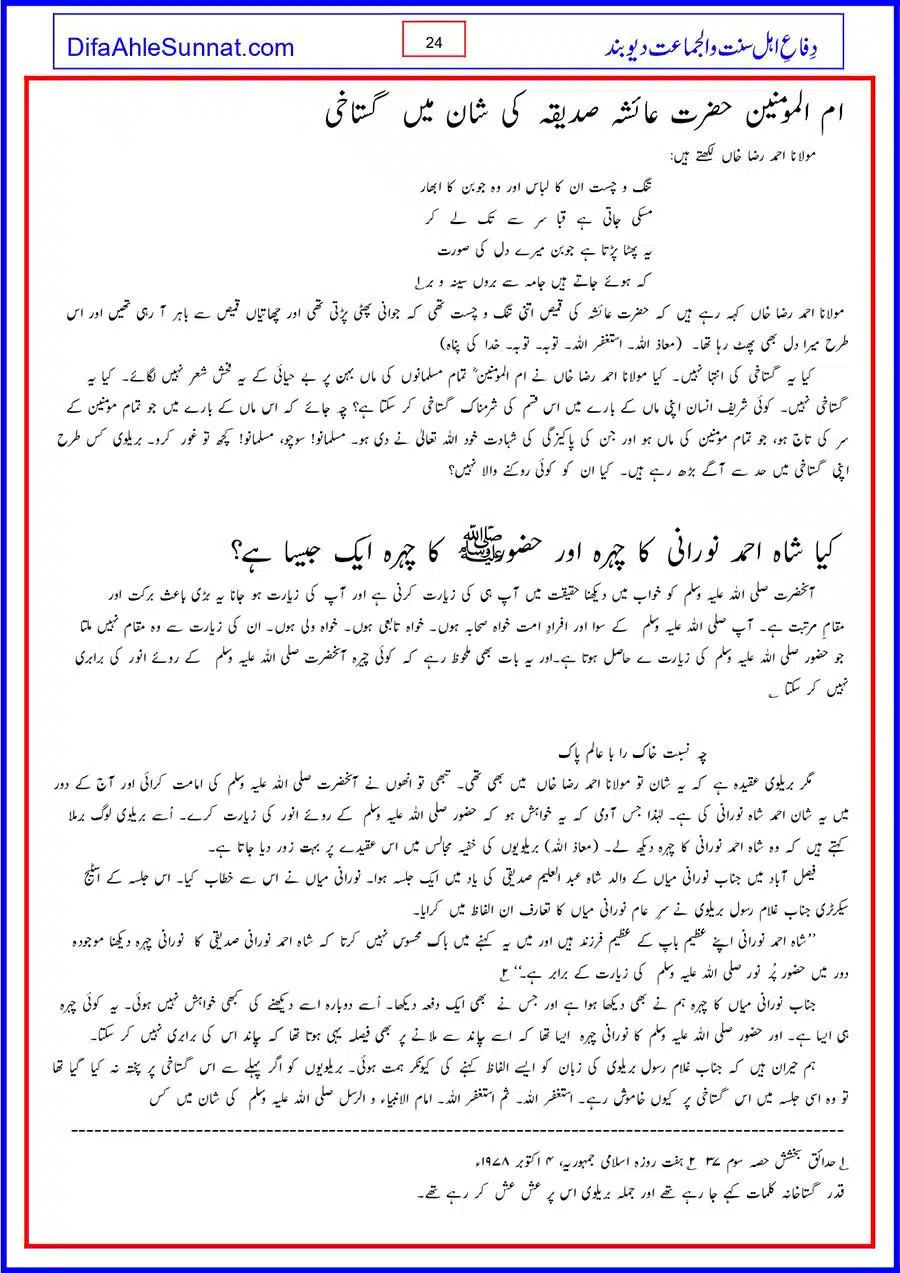 DifaAhleSunnat.com
24
دِفاعِ اہل سنت والجماعت دیوبند
ام المومنین حضرت عائشہ صدیقہ کی شان میں گستاخی
مولانا احمد رضا خاں لکھتے ہیں:
تنگ و چست ان کا لباس اور وہ جوبن کا ابھار
مسکی جاتی ہے قبا سر سے تک لے کر
یہ پھٹا پڑتا ہے جوبن میرے دل کی صورت
کہ ہوئے جاتے ہیں جامہ سے بروں سینہ و بر۱؎
مولانا احمد رضا خاں کہہ رہے ہیں کہ حضرت عائشہ کی قمیص اتنی تنگ و چست تھی کہ جوانی پھٹی پڑتی تھی اور چھاتیاں قمیص سے باہر آ رہی تھیں اور اس
طرح میرا دل بھی پھٹ رہا تھا۔ (معاذ اللہ۔ استغفر اللہ۔ توبہ۔ توبہ۔ خدا کی پناہ)
کیا یہ گستاخی کی انتہا نہیں۔ کیا مولانا احمد رضا خاں نے ام المومنینؓ تمام مسلمانوں کی ماں بہن پر بے حیائی کے یہ فحش شعر نہیں لگائے۔ کیا یہ
گستاخی نہیں۔ کوئی شریف انسان اپنی ماں کے بارے میں اس قسم کی شرمناک گستاخی کر سکتا ہے؟ چہ جائے کہ اس ماں کے بارے میں جو تمام مومنین کے
سر کی تاج ہو، جو تمام مومنین کی ماں ہو اور جن کی پاکیزگی کی شہادت خود اللہ تعالیٰ نے دی ہو۔ مسلمانو! سوچو، مسلمانو! کچھ تو غور کرو۔ بریلوی کس طرح
اپنی گستاخی میں حد سے آگے بڑھ رہے ہیں۔ کیا ان کو کوئی روکنے والا نہیں؟
کیا شاہ احمد نورانی کا چہرہ اور حضورﷺ کا چہرہ ایک جیسا ہے؟
آنحضرت صلی اللہ علیہ وسلم کو خواب میں دیکھنا حقیقت میں آپ ہی کی زیارت کرنی ہے اور آپ کی زیارت ہو جانا یہ بڑی باعث برکت اور
مقامِ مرتبت ہے۔ آپ صلی اللہ علیہ وسلم کے سوا اور افرادِ امت خواہ صحابہ ہوں۔ خواہ تابعی ہوں۔ خواہ ولی ہوں۔ ان کی زیارت سے وہ مقام نہیں ملتا
جو حضور صلی اللہ علیہ وسلم کی زیارت ے حاصل ہوتا ہے۔اور یہ بات بھی ملحوظ رہے کہ کوئی چہرہ آنحضرت صلی اللہ علیہ وسلم کے روئے انور کی برابری
نہیں کر سکتا ؎
چہ نسبت خاک را با عالم پاک
مگر بریلوی عقیدہ ہے کہ یہ شان تو مولانا احمد رضا خاں میں بھی تھی۔ تبھی تو انھوں نے آنحضرت صلی اللہ علیہ وسلم کی امامت کرائی اور آج کے دور
میں یہ شان احمد شاہ نورانی کی ہے۔ لہٰذا جس آدمی کہ یہ خواہش ہو کہ حضور صلی اللہ علیہ وسلم کے روئے انور کی زیارت کرے۔ اُسے بریلوی لوگ برملا
کہتے ہیں کہ وہ شاہ احمد نورانی کا چہرہ دیکھ لے۔ (معاذ اللہ) بریلویوں کی خفیہ مجالس میں اس عقیدے پر بہت زور دیا جاتا ہے۔
فیصل آباد میں جناب نورانی میاں کے والد شاہ عبد العلیم صدیقی کی یاد میں ایک جلسہ ہوا۔ نورانی میاں نے اس سے خطاب کیا۔ اس جلسہ کے اسٹیج
سیکرٹری جناب غلام رسول بریلوی نے سرِ عام نورانی میاں کا تعارف ان الفاظ میں کرایا۔
’’شاہ احمد نورانی اپنے عظیم باپ کے عظیم فرزند ہیں اور میں یہ کہنے میں باک محسوس نہیں کرتا کہ شاہ احمد نورانی صدیقی کا نورانی چہرہ دیکھنا موجودہ
دور میں حضور پُر نور صلی اللہ علیہ وسلم کی زیارت کے برابر ہے۔‘‘ ۲؎
جناب نورانی میاں کا چہرہ ہم نے بھی دیکھا ہوا ہے اور جس نے بھی ایک دفعہ دیکھا۔ اُسے دوبارہ اسے دیکھنے کی کبھی خواہش نہیں ہوئی۔ یہ کوئی چہرہ
ہی ایسا ہے۔ اور حضور صلی اللہ علیہ وسلم کا نورانی چہرہ ایسا تھا کہ اسے چاند سے ملانے پر بھی فیصلہ یہی ہوتا تھا کہ چاند اس کی برابری نہیں کر سکتا۔
ہم حیران ہیں کہ جناب غلام رسول بریلوی کی زبان کو ایسے الفاظ کہنے کی کیونکر ہمت ہوئی۔ بریلویوں کو اگر پہلے سے اس گستاخی پر پختہ نہ کیا گیا تھا
تو وہ اسی جلسہ میں اس گستاخی پر کیوں خاموش رہے۔ استغفر اللہ۔ ثم استغفر اللہ۔ امام الانبیاء و الرسل صلی اللہ علیہ وسلم کی شان میں کس
۱؎ حدائق بخشش حصہ سوم ۳۷ ۲؎ ہفت روزہ اسلامی جمہوریہ، ۴ اکتوبر ۱۹۷۸ء
قدر گستاخانہ کلمات کہے جا رہے تھے اور جملہ بریلوی اس پر عش عش کر رہے تھے۔